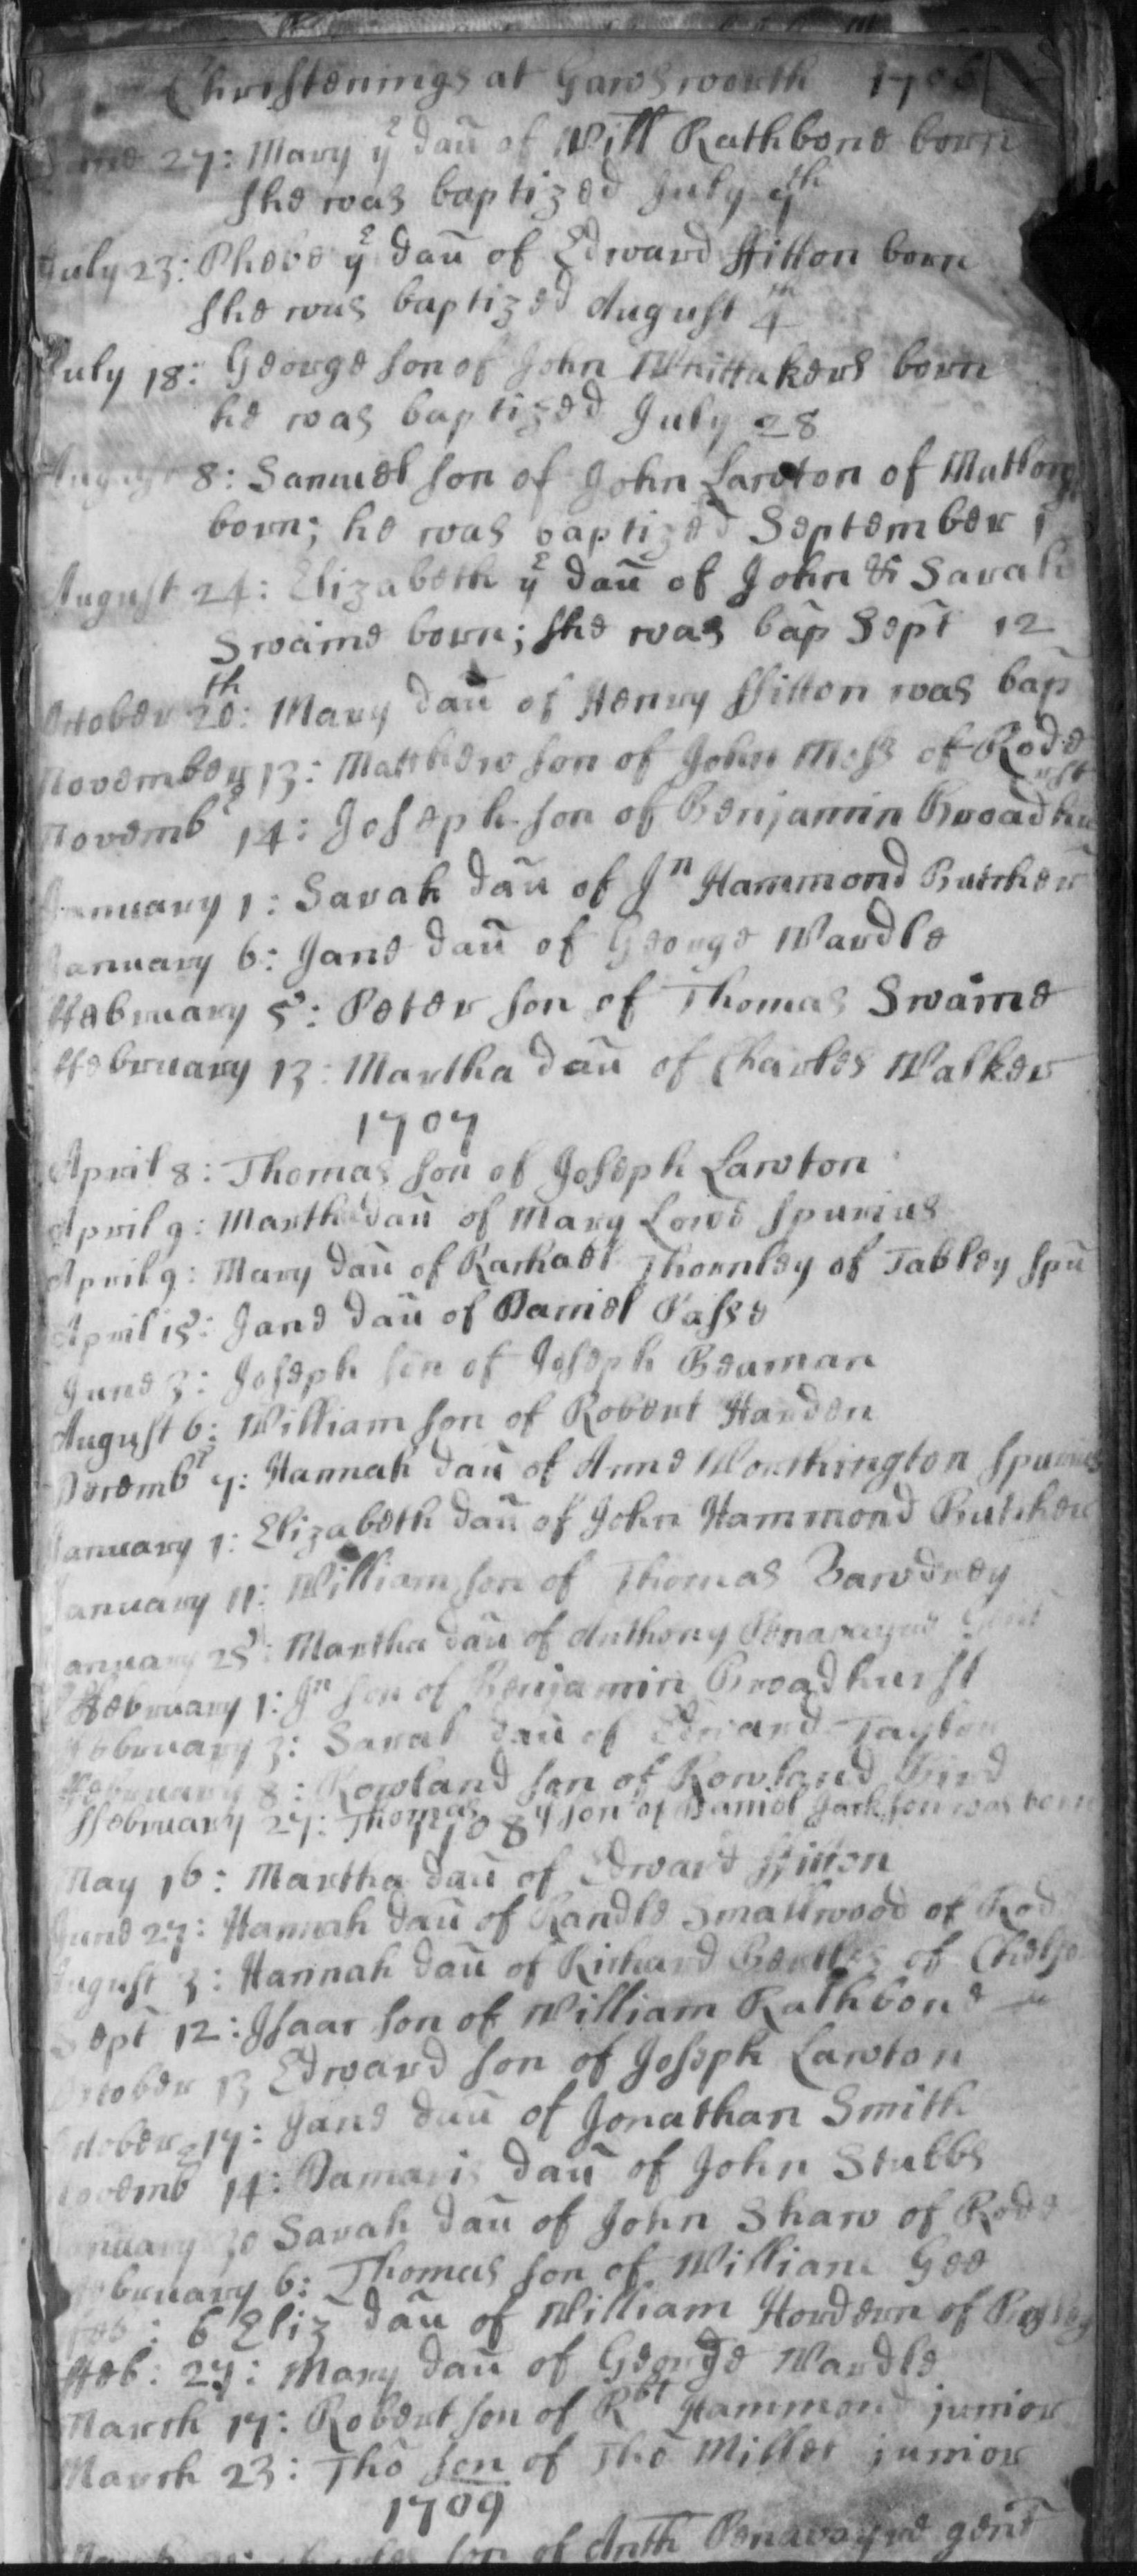 Christenings at Gawsworth 1706
June 27: Mary yᵉ daũ of Will Rathbone born
she was baptized July 7th
July 23: Phebe yᵉ daũ of Edward ffitton born
she was baptized August 4th
July 18: George son of John Whittakers born
he was baptized July 28
August 8: Samuel son of John Lawton of
born; he was baptized September
August 24: Elizabeth yᵉ daũ of John & Sarah
Swaine born; she was bap̃ Sept̃ 12
October 20th: Mary daũ of Henry ffitton was bap̃
November 13: Matthew son of John Moss of Rode
Novembʳ 14: Joseph son of Benjamin Broadhurst
January 1: Sarah daũ of Jⁿ Hammond Butcher
January 6: Jane daũ of George Wardle
ffebruary 5: Peter son of Thomas Swaine
ffebruary 13: Martha daũ of Charles Walker
1707
April 8: Thomas son of Joseph Lawton
April 9: Martha daũ of Mary Lowe spurius
April 9: Mary daũ of Rachael Thornley of Tabley spũ
April 15: Jane daũ of Daniel Passe
June 3: Joseph son of Joseph Beuman
August 6: William son of Robert Harden
Decembʳ 7: Hannah daũ of Anne Worthington spurius
January 1: Elizabeth daũ of John Hammond Butcher
January 11: William son of Thomas Bawdrey
January 25: Martha daũ of Anthony
ffebruary 1: Jⁿ son of Benjamin Broadhurst
ffebruary 3: Sarah daũ of Edward Taylor
ffebruary 8: Rowland son of Rowland
ffebruary 27: Thomas yᵉ son of Daniel Jackson was born
1708
May 16: Martha daũ of Edward ffitton
June 27: Hannah daũ of Randle Smallwood of Rod
August 3: Hannah daũ of Richard of
Sept̃ 12: Isaac son of William Rathbone
October 13 Edward son of Joseph Lawton
October 17: Jane daũ of Jonathan Smith
Novembʳ 14: Damaris daũ of John Stubbs
January 30 Sarah daũ of John Shaw of Rode
ffebruary 6: Thomas son of William Gee
ffeb: 6 Eliz daũ of William Howdern of
ffeb: 27: Mary daũ of George Wardle
March 17: Robert son of Rᵇᵗ Hammond junior
March 23: Tho son of Tho Miller junior
1709
son of Anth gent̃